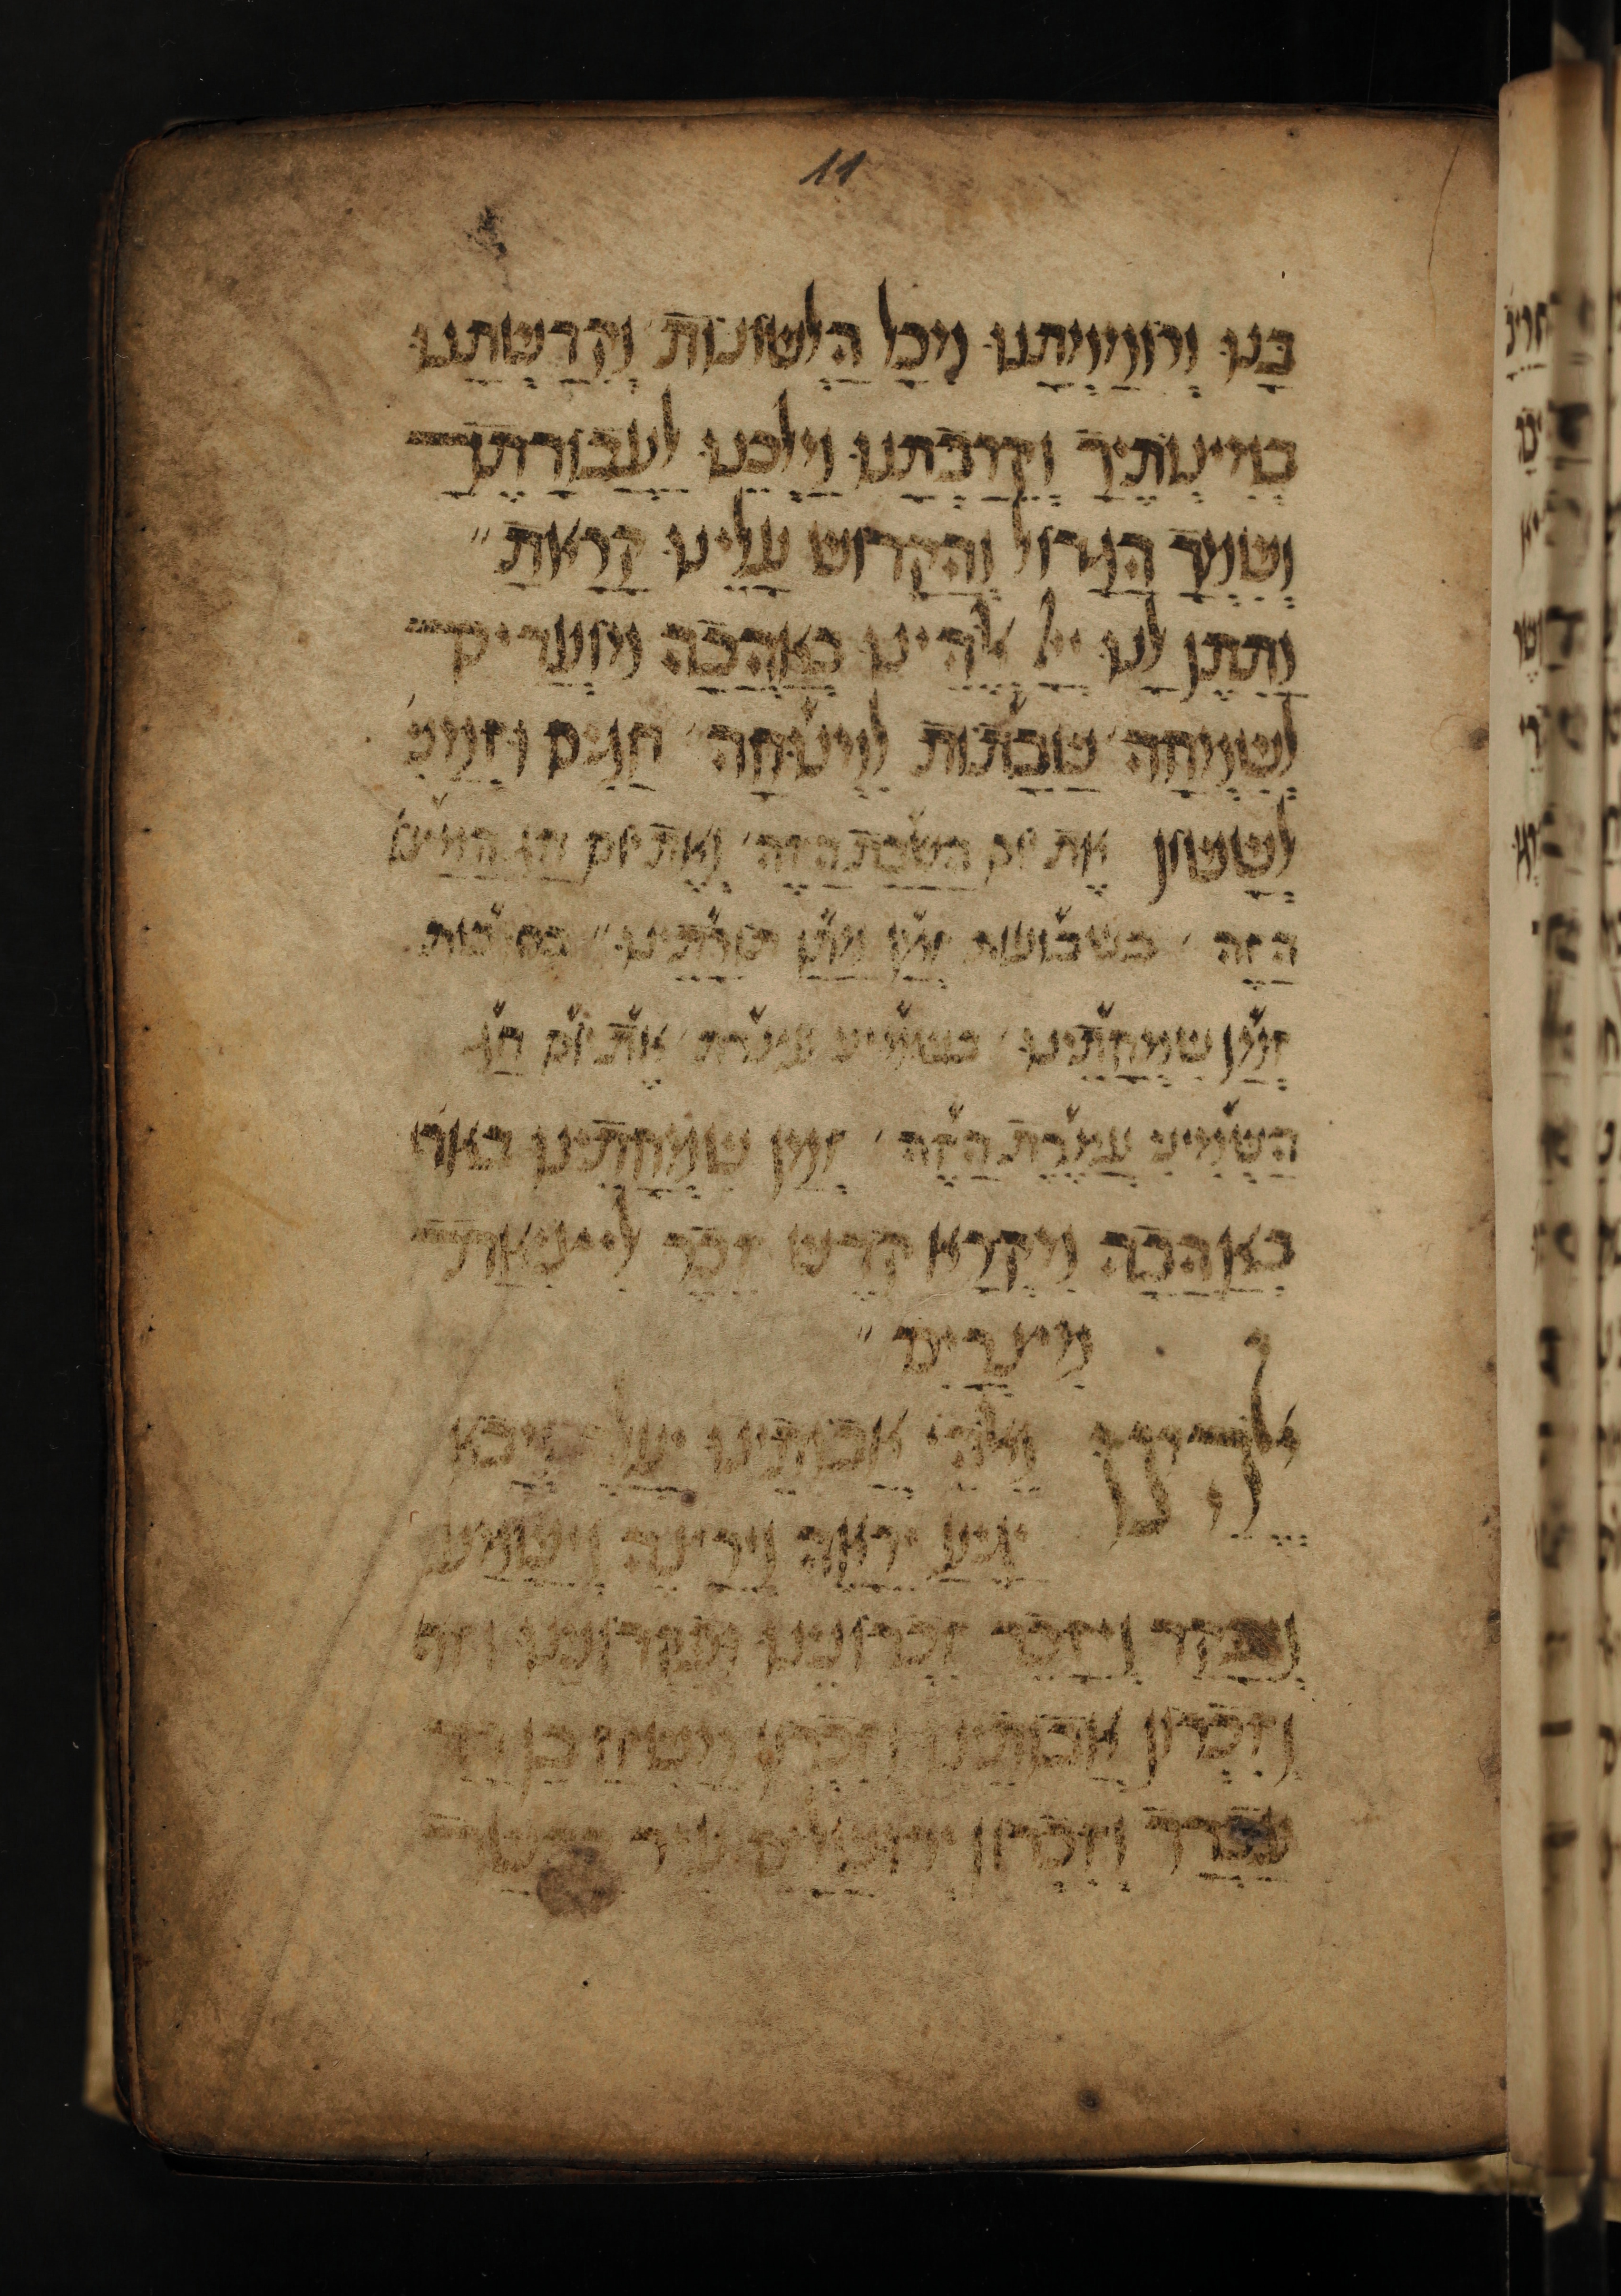 11
בָּנוּ וְרוֹמַמְתָּנוּ מִכָּל הַלְּשׁוֹנוֹת וְקִדַּשְׁתָּנוּ
בְּמִצְוֹתֶיךָ וְקֵרַבְתָּנוּ מַלְכֵּנוּ לַעֲבוֹדָתֶךָ
וְשִׁמְךָ הַגָּדוֹל וְהַקָּדוֹשׁ עָלֵינוּ קָרָאתָ״
וַתִּתֶּן לָנוּ ייָ אֱלֹהֵינוּ בְּאַהֲבָה מוֹעֲדִים
לְשִׂמְחָה׳ שַׁבָּתוֹת לִמְנוּחָה׳ חַגִּים וּזְמַנִּ׳
לְשָׂשׂוֹן אֶת יום הַשַּׁבָּת הַזֶּה׳ וְאֶת יום חַג הַמַּצּוֹ׳
הַזֶּה׳ בשבועות זְמַן מַתַּן תּוֹרָתֵינוּ״ בסוכות
זְמַן שִׂמְחָתֵינוּ׳ בשמיני עצרת׳ אֶת יוֹם חַג
הַשְּׁמִינִי עֲצֶרֶת הַזֶּה׳ זְמַן שִׂמְחָתֵינוּ באה׳
בְּאַהֲבָה מִקְרָא קֹדֶשׁ זֵכֶר לִיצִיאַת
מִצְרָיִם״
אֱלֹהֵינוּ וֵאלֹהֵי אֲבוֹתֵינוּ יַעֲלֶה וְיָבֹא
יַגִּיעַ יֵרָאֶה וְיֵרָצֶה וְיִשָּׁמַע
וְיִפָּקֵד וְיִזָּכֵר זִכְרוֹנֵינוּ וּפִקְדוֹנֵינוּ
וְזִכְרוֹן אֲבוֹתֵינוּ וְזִכְרוֹן מָשִׁיחַ בֶּן דָּוִד
עַבְדֶּךָ וְזִכְרוֹן יְרוּשָׁלַיִם עִיר קָדְשֶׁךָ